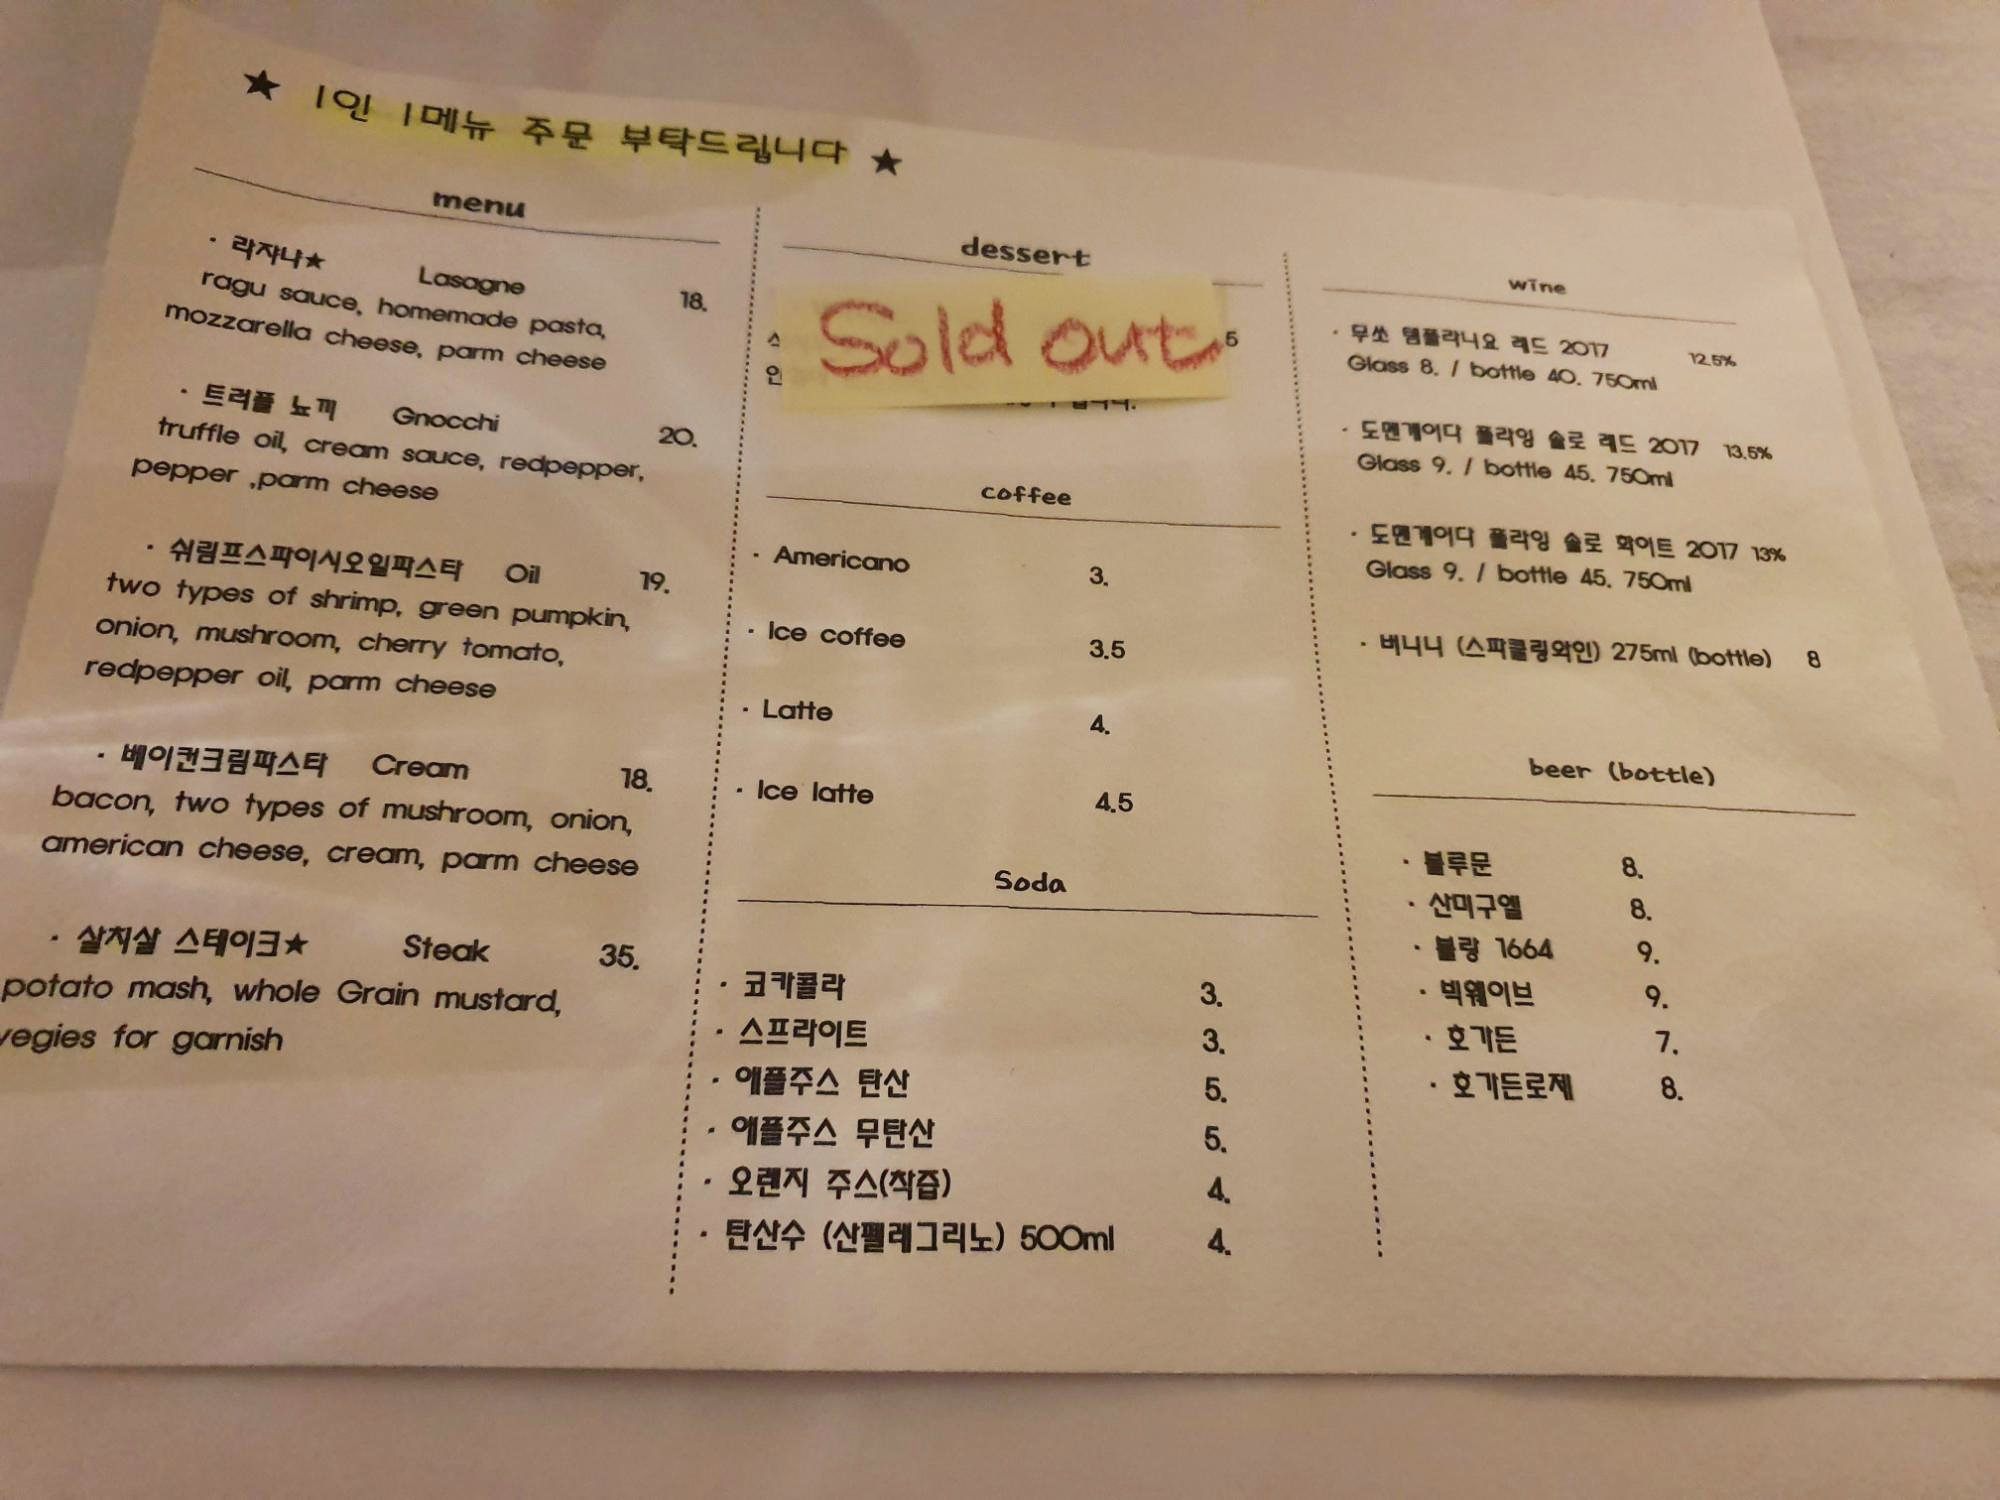 ★ 1인 1메뉴 주문 부탁드립니다 ★
menu
· 라쟈냐★ Lasagne 18.
ragu sauce, homemade pasta,
mozzarella cheese, parm cheese
· 트러플 뇨끼 Gnocchi 20.
truffle oil, cream sauce, redpepper,
pepper ,parm cheese
· 쉬림프스파이시오일파스타 Oil 19.
two types of shrimp, green pumpkin,
onion, mushroom, cherry tomato,
redpepper oil, parm cheese
· 베이컨크림파스타 Cream 18.
bacon, two types of mushroom, onion,
american cheese, cream, parm cheese
· 살치살 스테이크★ Steak 35.
potato mash, whole Grain mustard,
vegies for garnish
dessert
Sold out
coffee
· Americano 3.
· Ice coffee 3.5
· Latte 4.
· Ice latte 4.5
Soda
· 코카콜라 3.
· 스프라이트 3.
· 애플주스 탄산 5.
· 애플주스 무탄산 5.
· 오렌지 주스(착즙) 4.
· 탄산수 (산펠레그리노) 500ml 4.
wine
· 무쏘 템플라니요 레드 2017 12.5%
Glass 8. / bottle 40. 750ml
· 도멘게이다 플라잉 솔로 레드 2017 13.5%
Glass 9. / bottle 45. 750ml
· 도멘게이다 플라잉 솔로 화이트 2017 13%
Glass 9. / bottle 45. 750ml
· 버니니 (스파클링와인) 275ml (bottle) 8
beer (bottle)
· 블루문 8.
· 산미구엘 8.
· 블랑 1664 9.
· 빅웨이브 9.
· 호가든 7.
· 호가든로제 8.